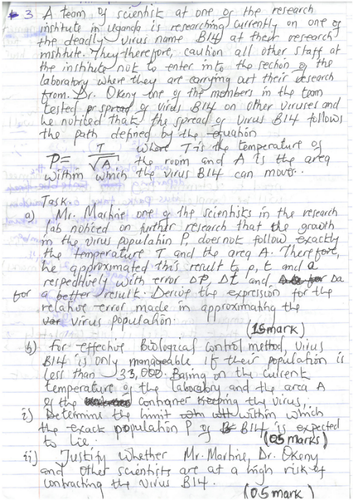 3 A team of scientist at one of the research
institute in Uganda is researching currently on one of
the deadly virus name B14 at their research
institute. They therefore, caution all other staff at
the institute not to enter into the section of the
laboratory where they are carrying out their research
from. Dr. Okeny one of the members in the team
tested spread of virus B14 on other viruses and
he noticed that the spread of virus B14 follows
the path defined by the equation
P = T/√A where T is the temperature of
the room and A is the area
within which the virus B14 can move.
Task.
a) Mr. Martine one of the scientists in the research
lab noticed on further research that the growth
in the virus population P does not follow exactly
the temperature T and the area A. Therefore,
he approximated this result to p, t and a
respectively with error ΔP, Δt and Δa
for a better result. Derive the expression for the
relative error made in approximating the
virus population.
(15mark)
b) For effective Biological control method, virus
B14 is only manageable if their population is
less than 33,000. Basing on the current
temperature of the laboratory and the area A
of the container keeping the virus,
i) Determine the limit within which
the exact population P of B14 is expected
to lie.
(05 marks)
ii) Justify whether Mr. Martine, Dr. Okeny
and other scientists are at a high risk of
contracting the virus B14.
(05mark)